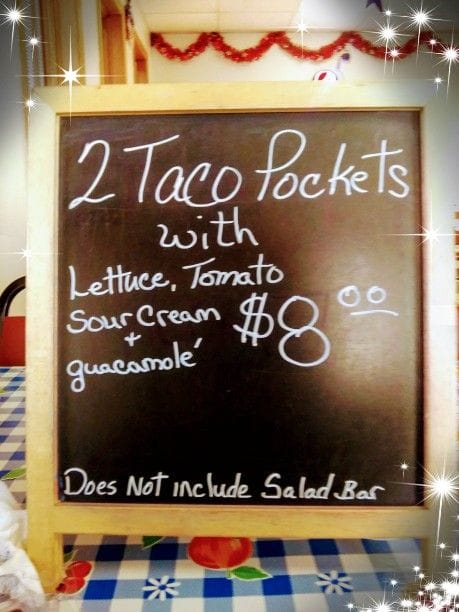 2 Taco Pockets
with
Lettuce, Tomato
Sour Cream $8.00
+
guacamolé
Does Not include Salad Bar